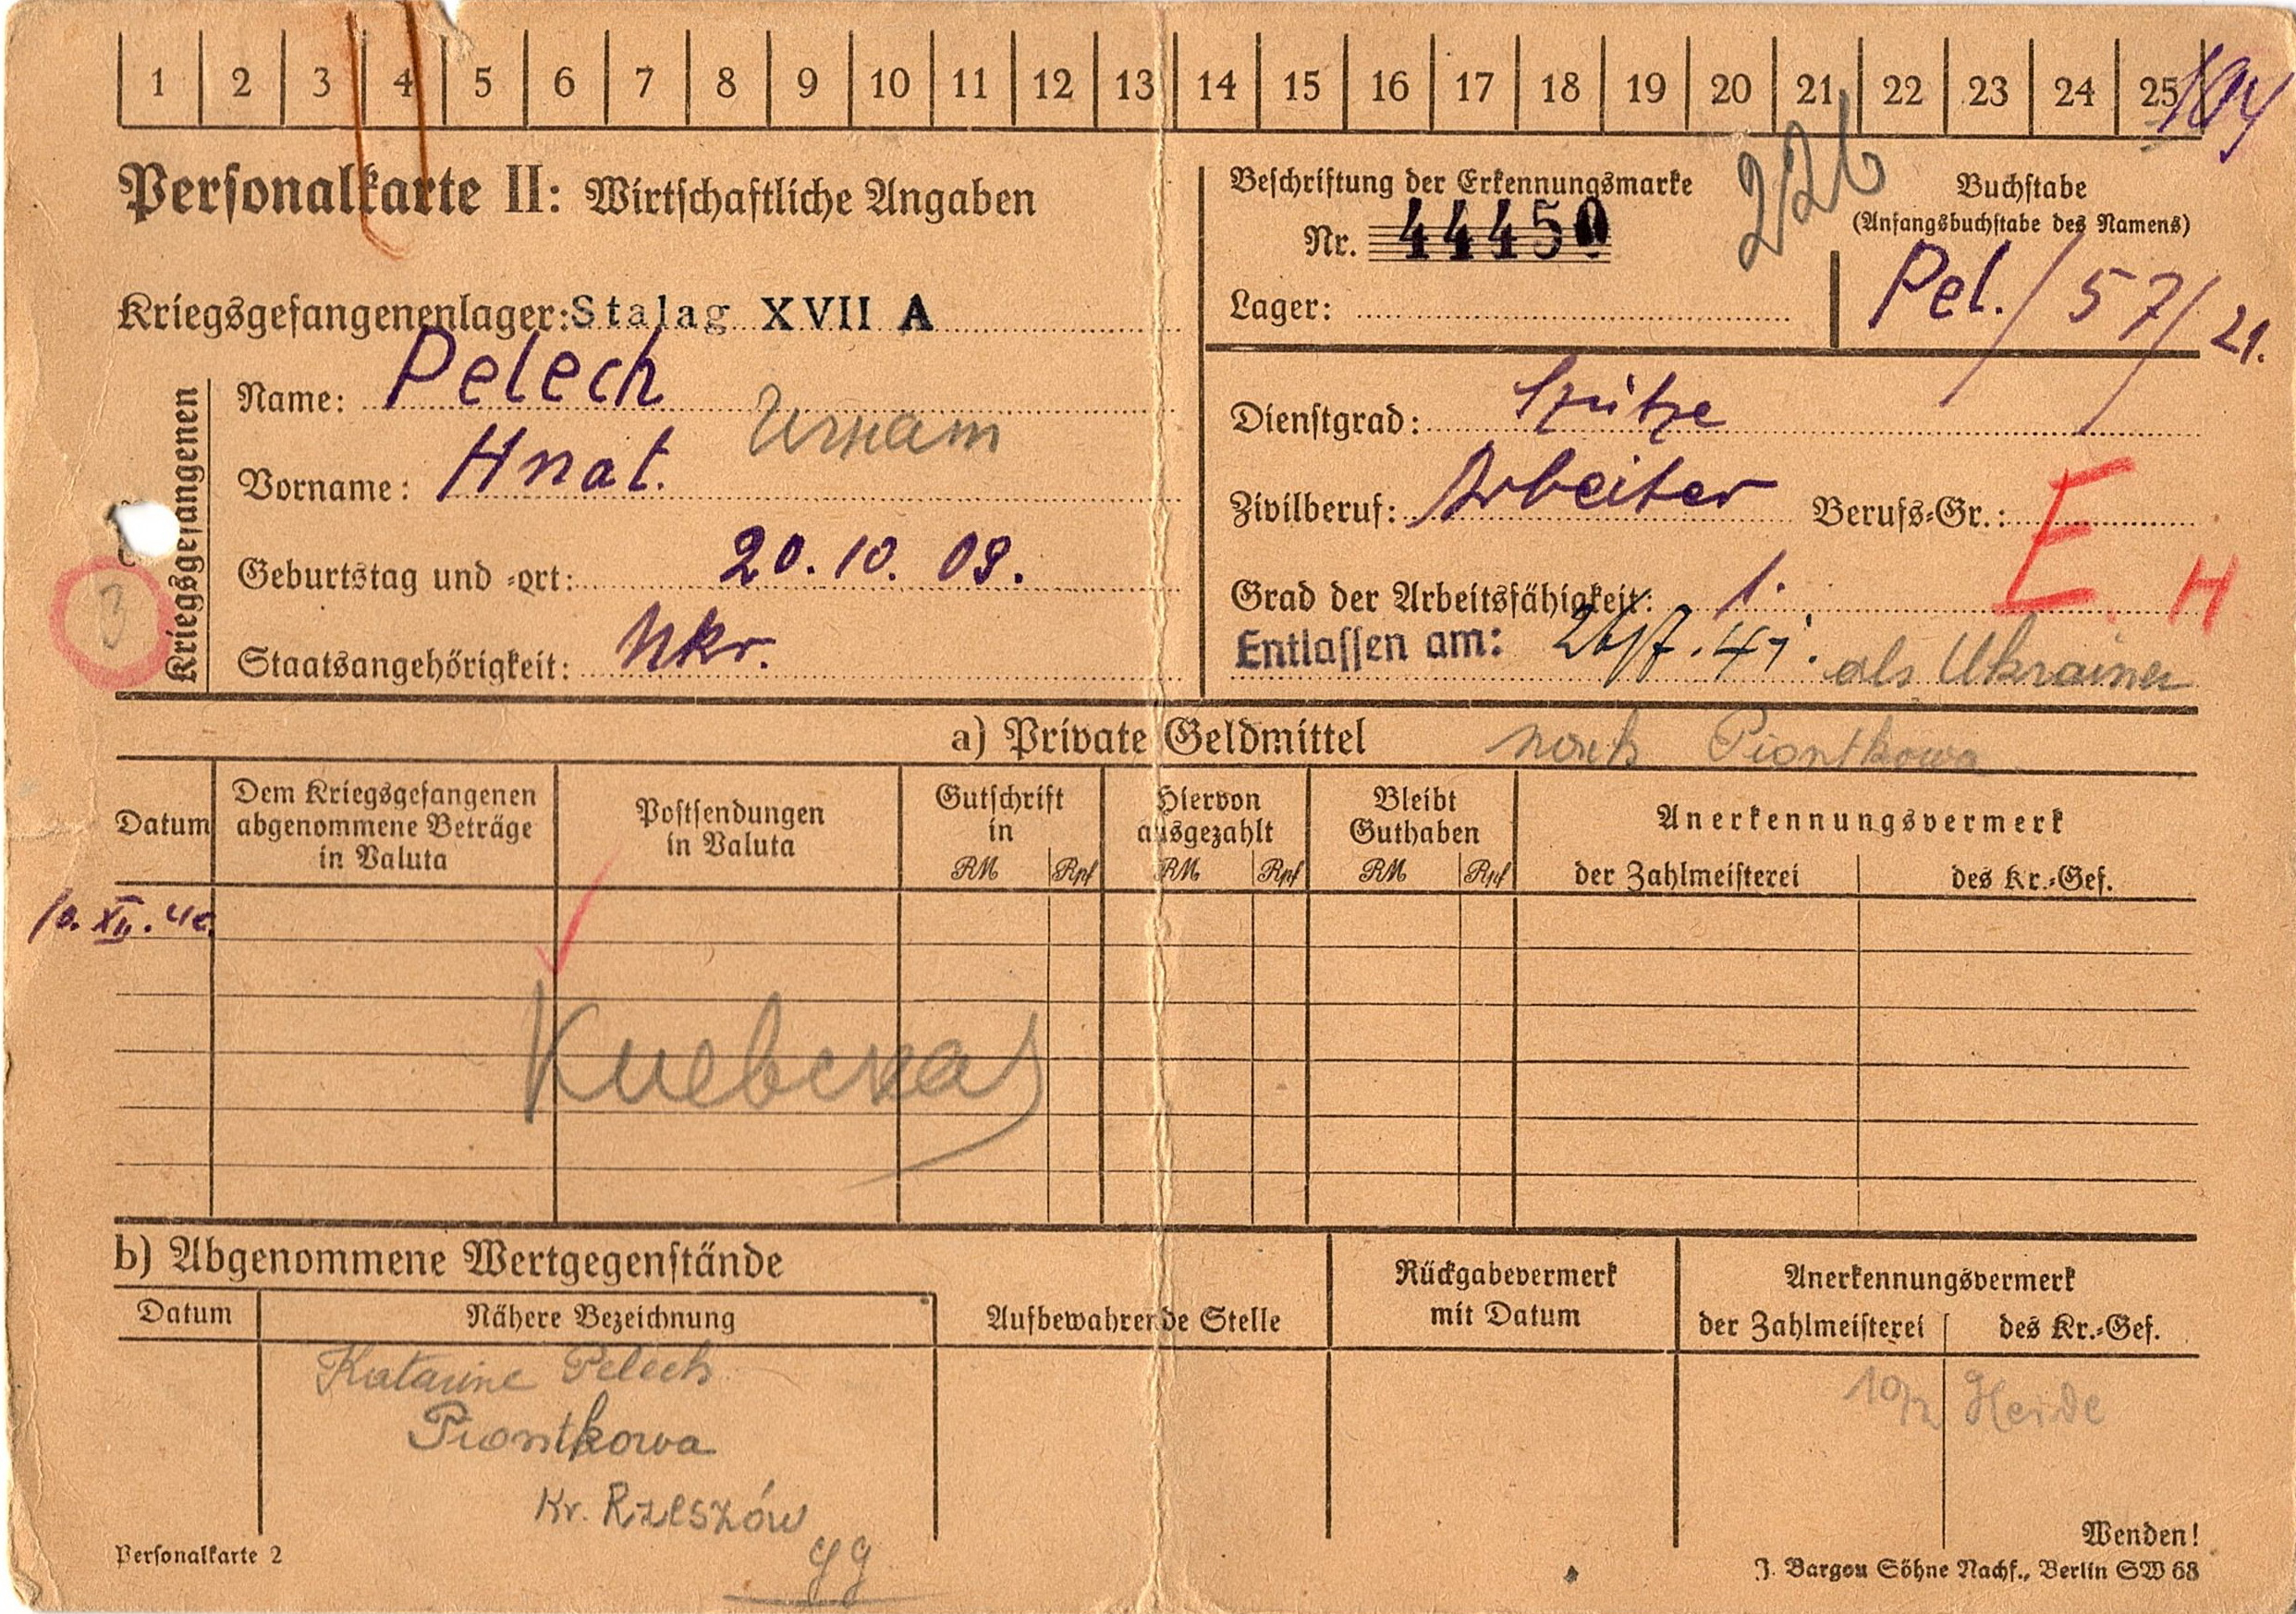 1 2 3 4 5 6 7 8 9 10 11 12 13 14 15 16 17 18 19 20 21 22 23 24 25
Personalkarte II: Wirtschaftliche Angaben
Beschriftung der Erkennungsmarke
Nr. 44450
226
Buchstabe
(Anfangsbuchstabe des Namens)
Kriegsgefangenenlager: Stalag XVII A
Lager:
Pel. / 57 / 21.
Kriegsgefangenen
3
Name: Pelech
Vorname: Hnat.
Geburtstag und -ort: 20. 10. 09.
Staatsangehörigkeit: Ukr.
Dienstgrad: Schütze
Zivilberuf: Arbeiter Berufs-Gr.: E H
Grad der Arbeitsfähigkeit: 1.
Entlassen am: 41. als Ukrainer
a) Private Geldmittel nach Piontkowa
Datum
Dem Kriegsgefangenen abgenommene Beträge in Valuta
Postsendungen in Valuta
Gutschrift in
RM Rpf
Hiervon ausgezahlt
RM Rpf
Bleibt Guthaben
RM Rpf
Anerkennungsvermerk
der Zahlmeisterei
des Kr.-Gef.
10. XII. 40.
b) Abgenommene Wertgegenstände
Datum
Nähere Bezeichnung
Aufbewahrende Stelle
Rückgabevermerk mit Datum
Anerkennungsvermerk
der Zahlmeisterei
des Kr.-Gef.
Katarine Pelech
Piontkowa
Kr. Rzeszów
gg
Heide
Wenden!
Personalkarte 2
J. Bargou Söhne Nachf., Berlin SW 68